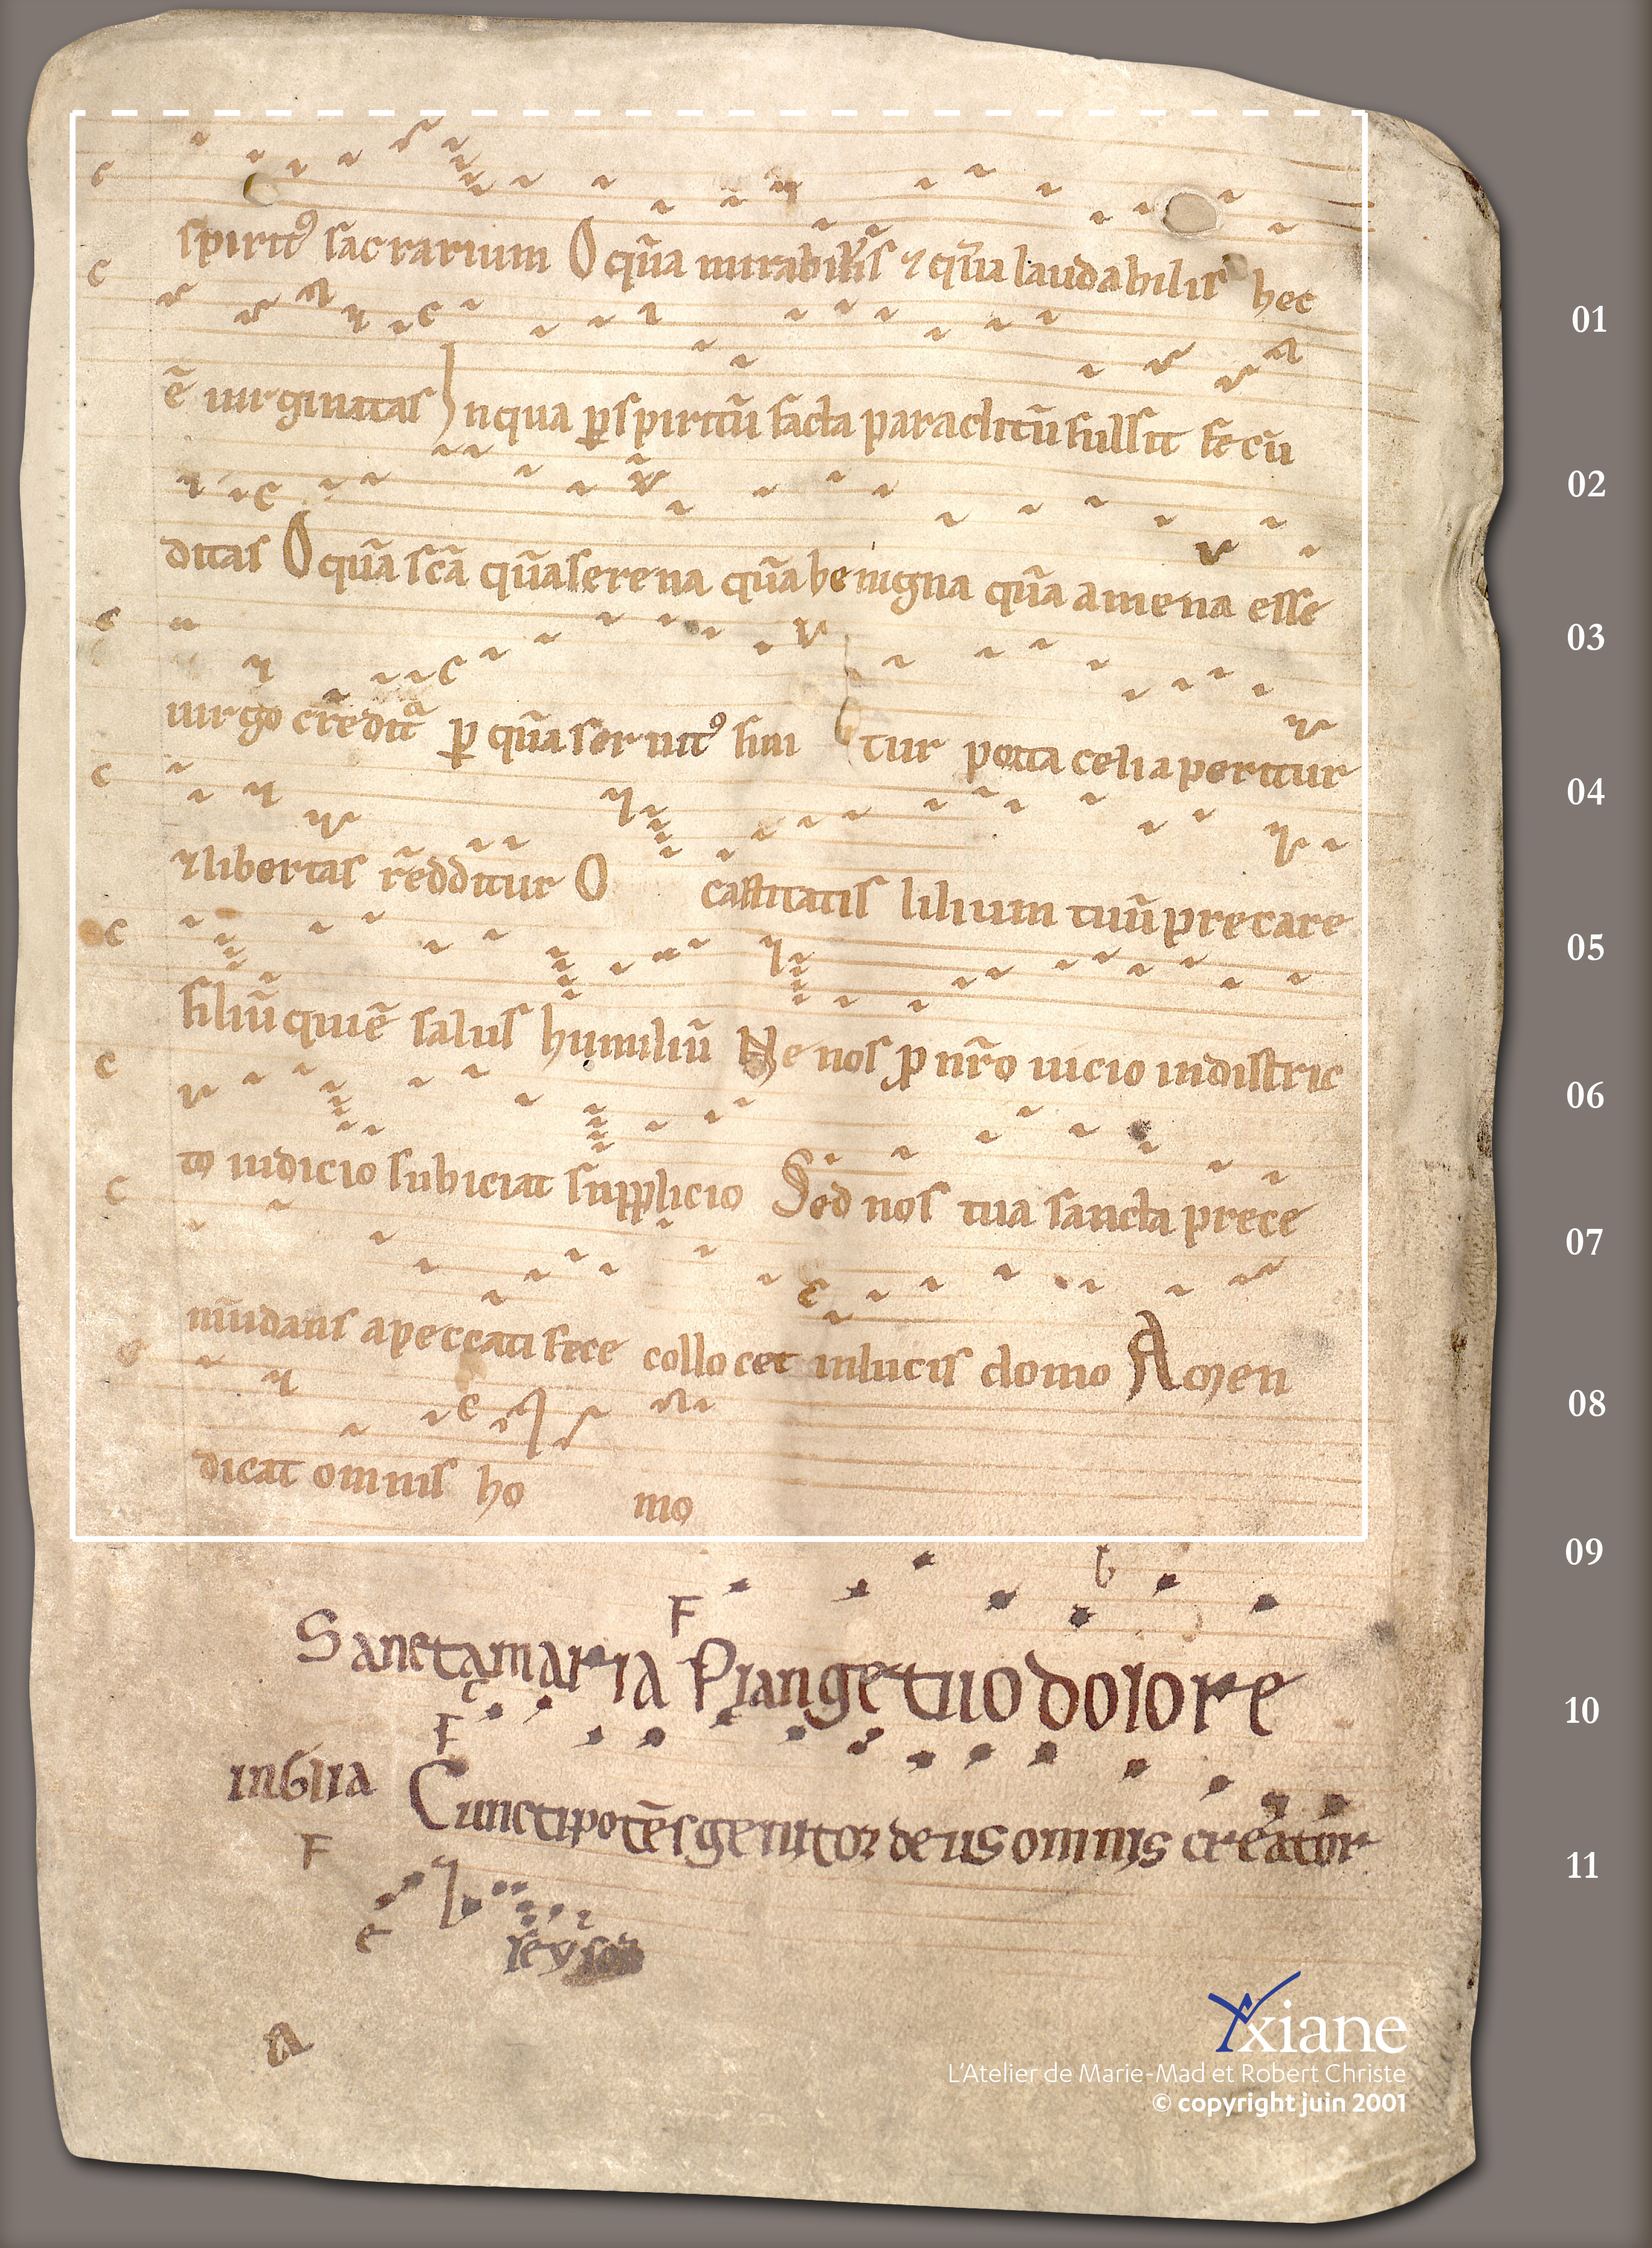 spiritꝰ sacrarium O quā mirabilis ⁊ quā laudabilis hec
01
ē uirginitas In qua ꝑ spiritū facta paraclitū fulsit fecū
02
ditas O quā scā quā serena quā benigna quā amena esse
03
uirgo credit ꝑ quā seruitꝰ fini tur porta celi aperitur
04
⁊ libertas redditur O castitatis lilium tuū precare
05
filiū qui ē salus humiliū Ne nos ꝓ nr̄o uicio in district
06
to iudicio subiciat supplicio Sed nos tua sancta prece
07
mūdans a peccati fece collocet in lucis domo Amen
08
dicat omnis ho mo
09
Sanctamaria Plange tuo dolore
10
inGlia Cunctipotēs genitor deus omnis creator
11
leyson
a
Yxiane
L'Atelier de Marie-Mad et Robert Christe
© copyright juin 2001